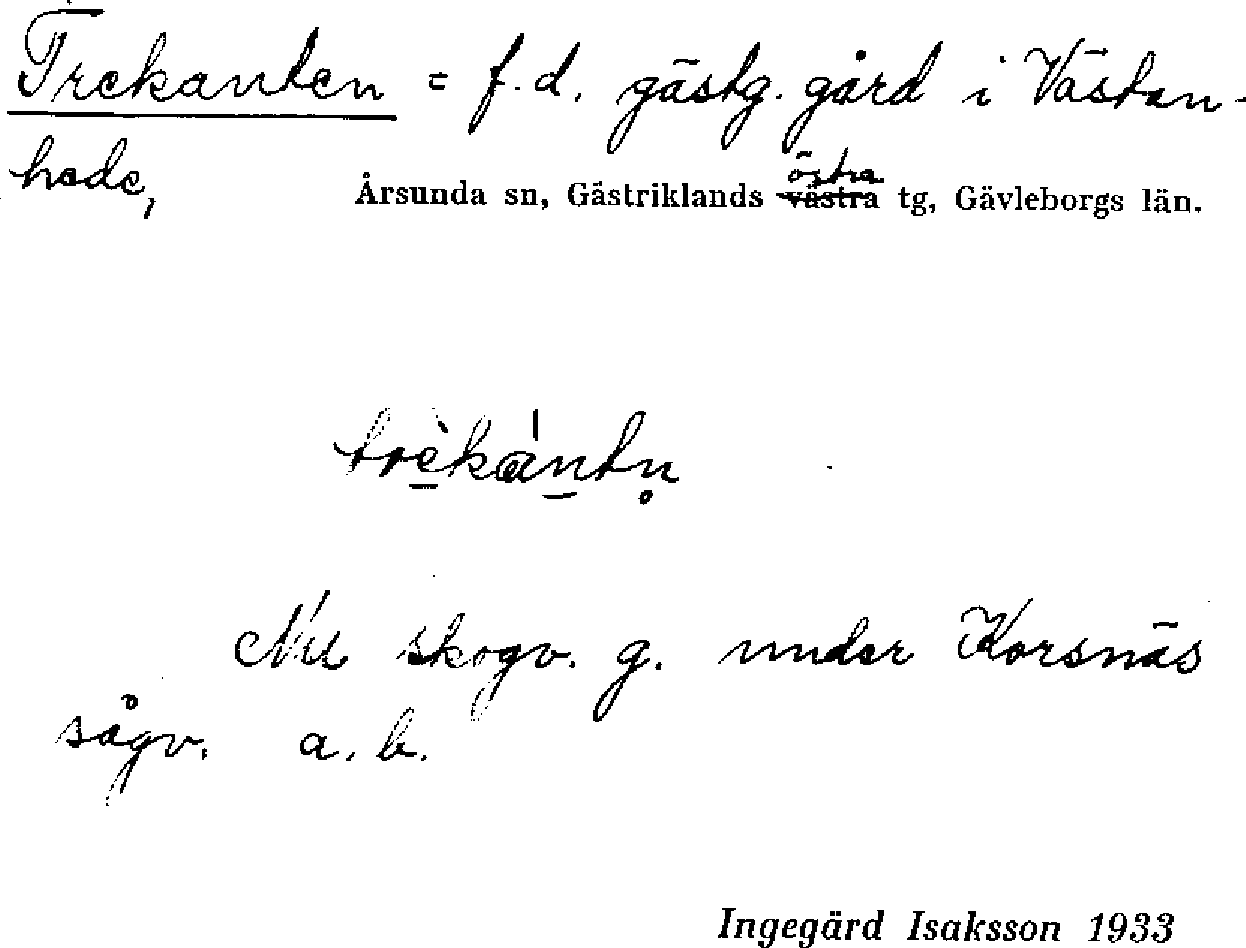 Trekanten = f.d. gästg. gård i Västan-
hede,
Årsunda sn, Gästriklands västra östra tg, Gävleborgs län.
trèkántn̥
Nu skogv. g. under Korsnäs
sågv. a.b.
Ingegärd Isaksson 1933